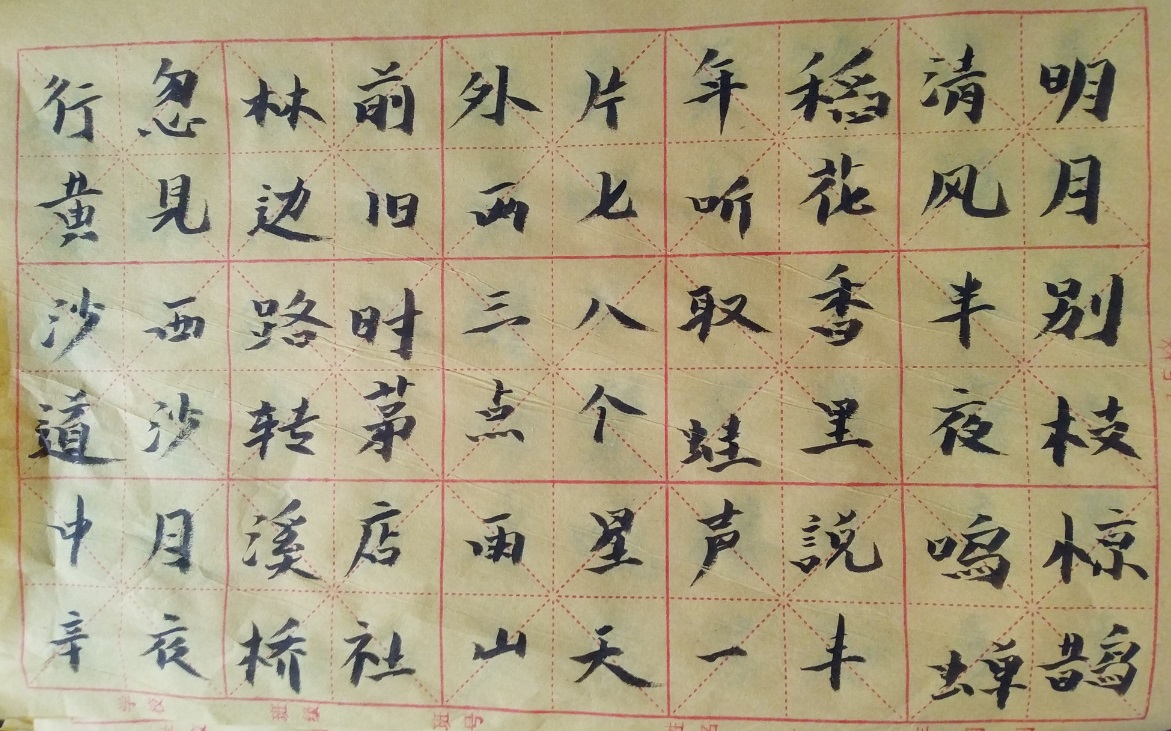 明月别枝惊鹊
清风半夜鸣蝉
稻花香里説丰
年听取蛙声一
片七八个星天
外两三点雨山
前旧时茅店社
林边路转溪桥
忽见西沙月夜
行黄沙道中辛